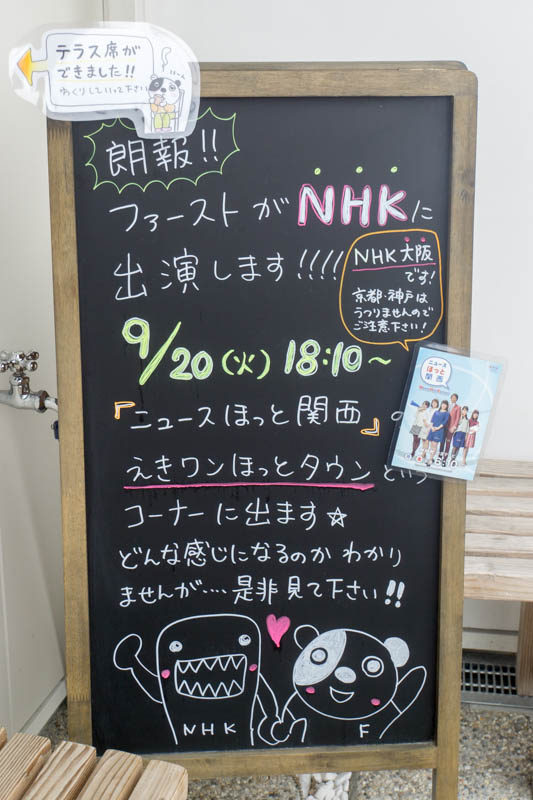 テラス席が
できました!!
ゆっくりしていって下さい
朗報!!
ファーストが NHKに
出演します!!!!
NHK大阪
です!
京都・神戸は
うつりませんので
ご注意下さい!
9/20(火) 18:10~
『ニュースほっと関西』の
えきワンほっとタウン という
コーナーに出ます☆
どんな感じになるのか わかり
ませんが‥‥是非見て下さい!!
NHK
F
ニュース
ほっと
関西
6:10